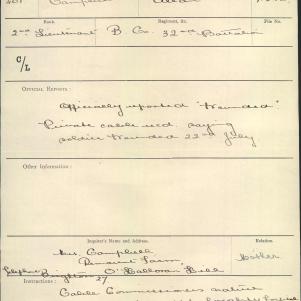 Campbell
Rank
Regiment, &c.
File No.
2nd Lieutenant B. Co. 32nd Battalion
C/L
OFFICIAL REPORTS:
Officially reported "Wounded"
Private cable recd. saying
soldier wounded 22nd July
Other Information:
Inquirer's Name and Address.
Relation.
Mrs. Campbell
Farm
Mother
Telephone Brighton 27 O'Halloran Hill
Instructions:
Cable Commissioners nature